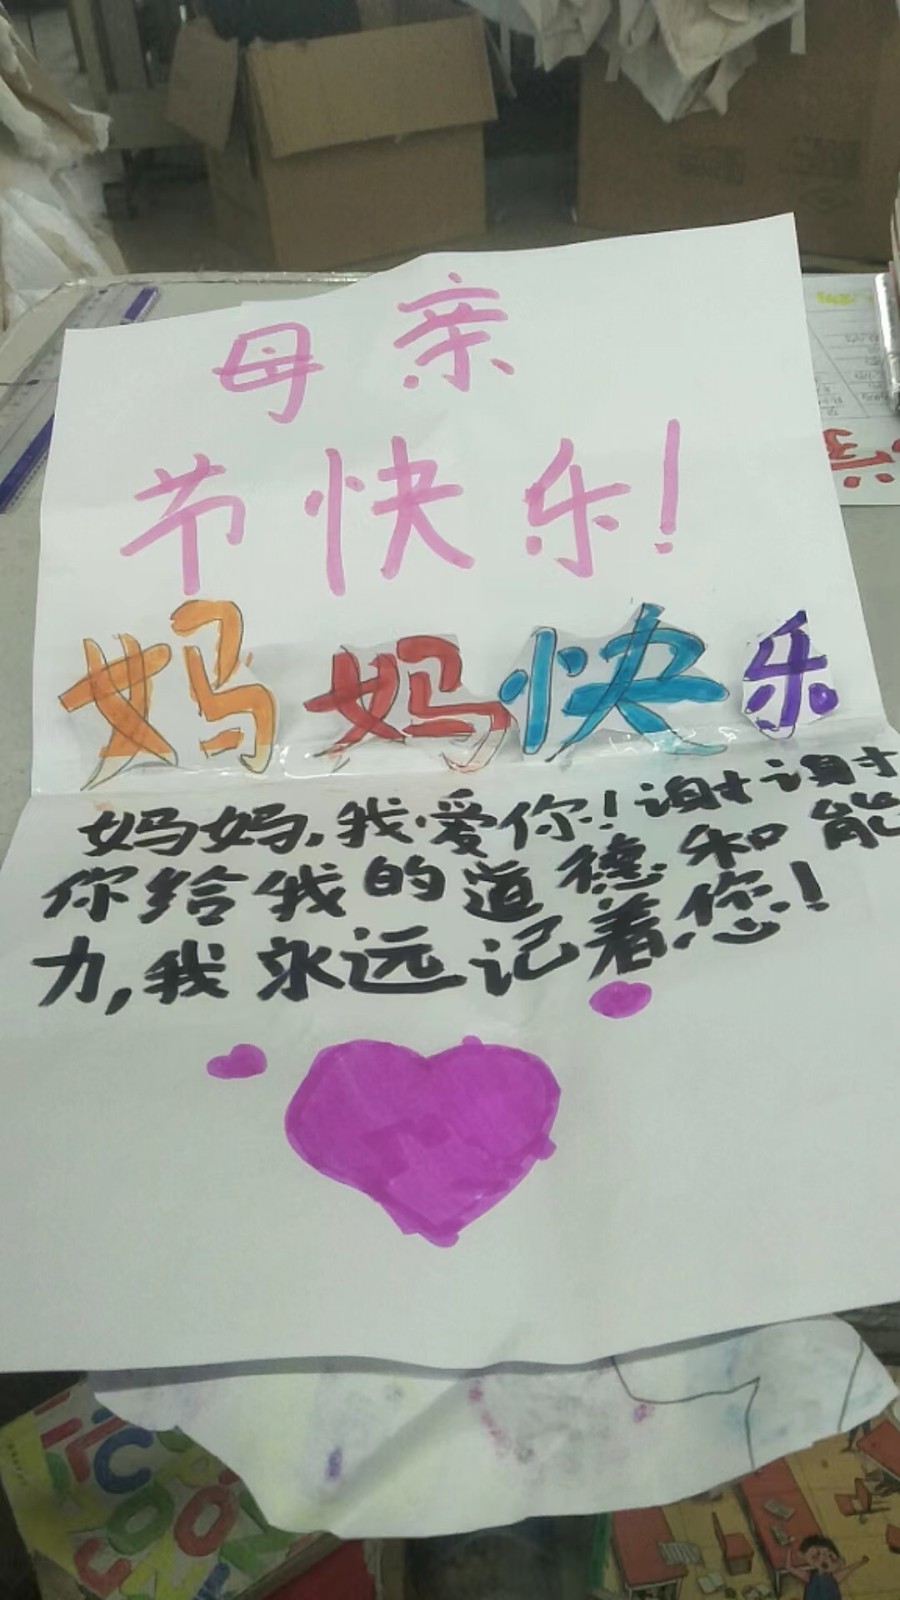 母亲
节快乐！
妈妈快乐
妈妈，我爱你！谢谢
你给我的道德和能
力，我永远记着您！